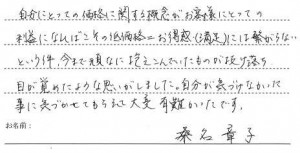 自分にとっての価格に関する概念がお客様にとっての
利益になればこその低価格=お得感(満足)には繋がらない
という件、今まで頑なに抱えこんでいたものが抜け落ち
目が覚めたような思いがしました。自分が気づけなかった
事に気づかせてもらえて大変有難かったです。
お名前:
桑名章子